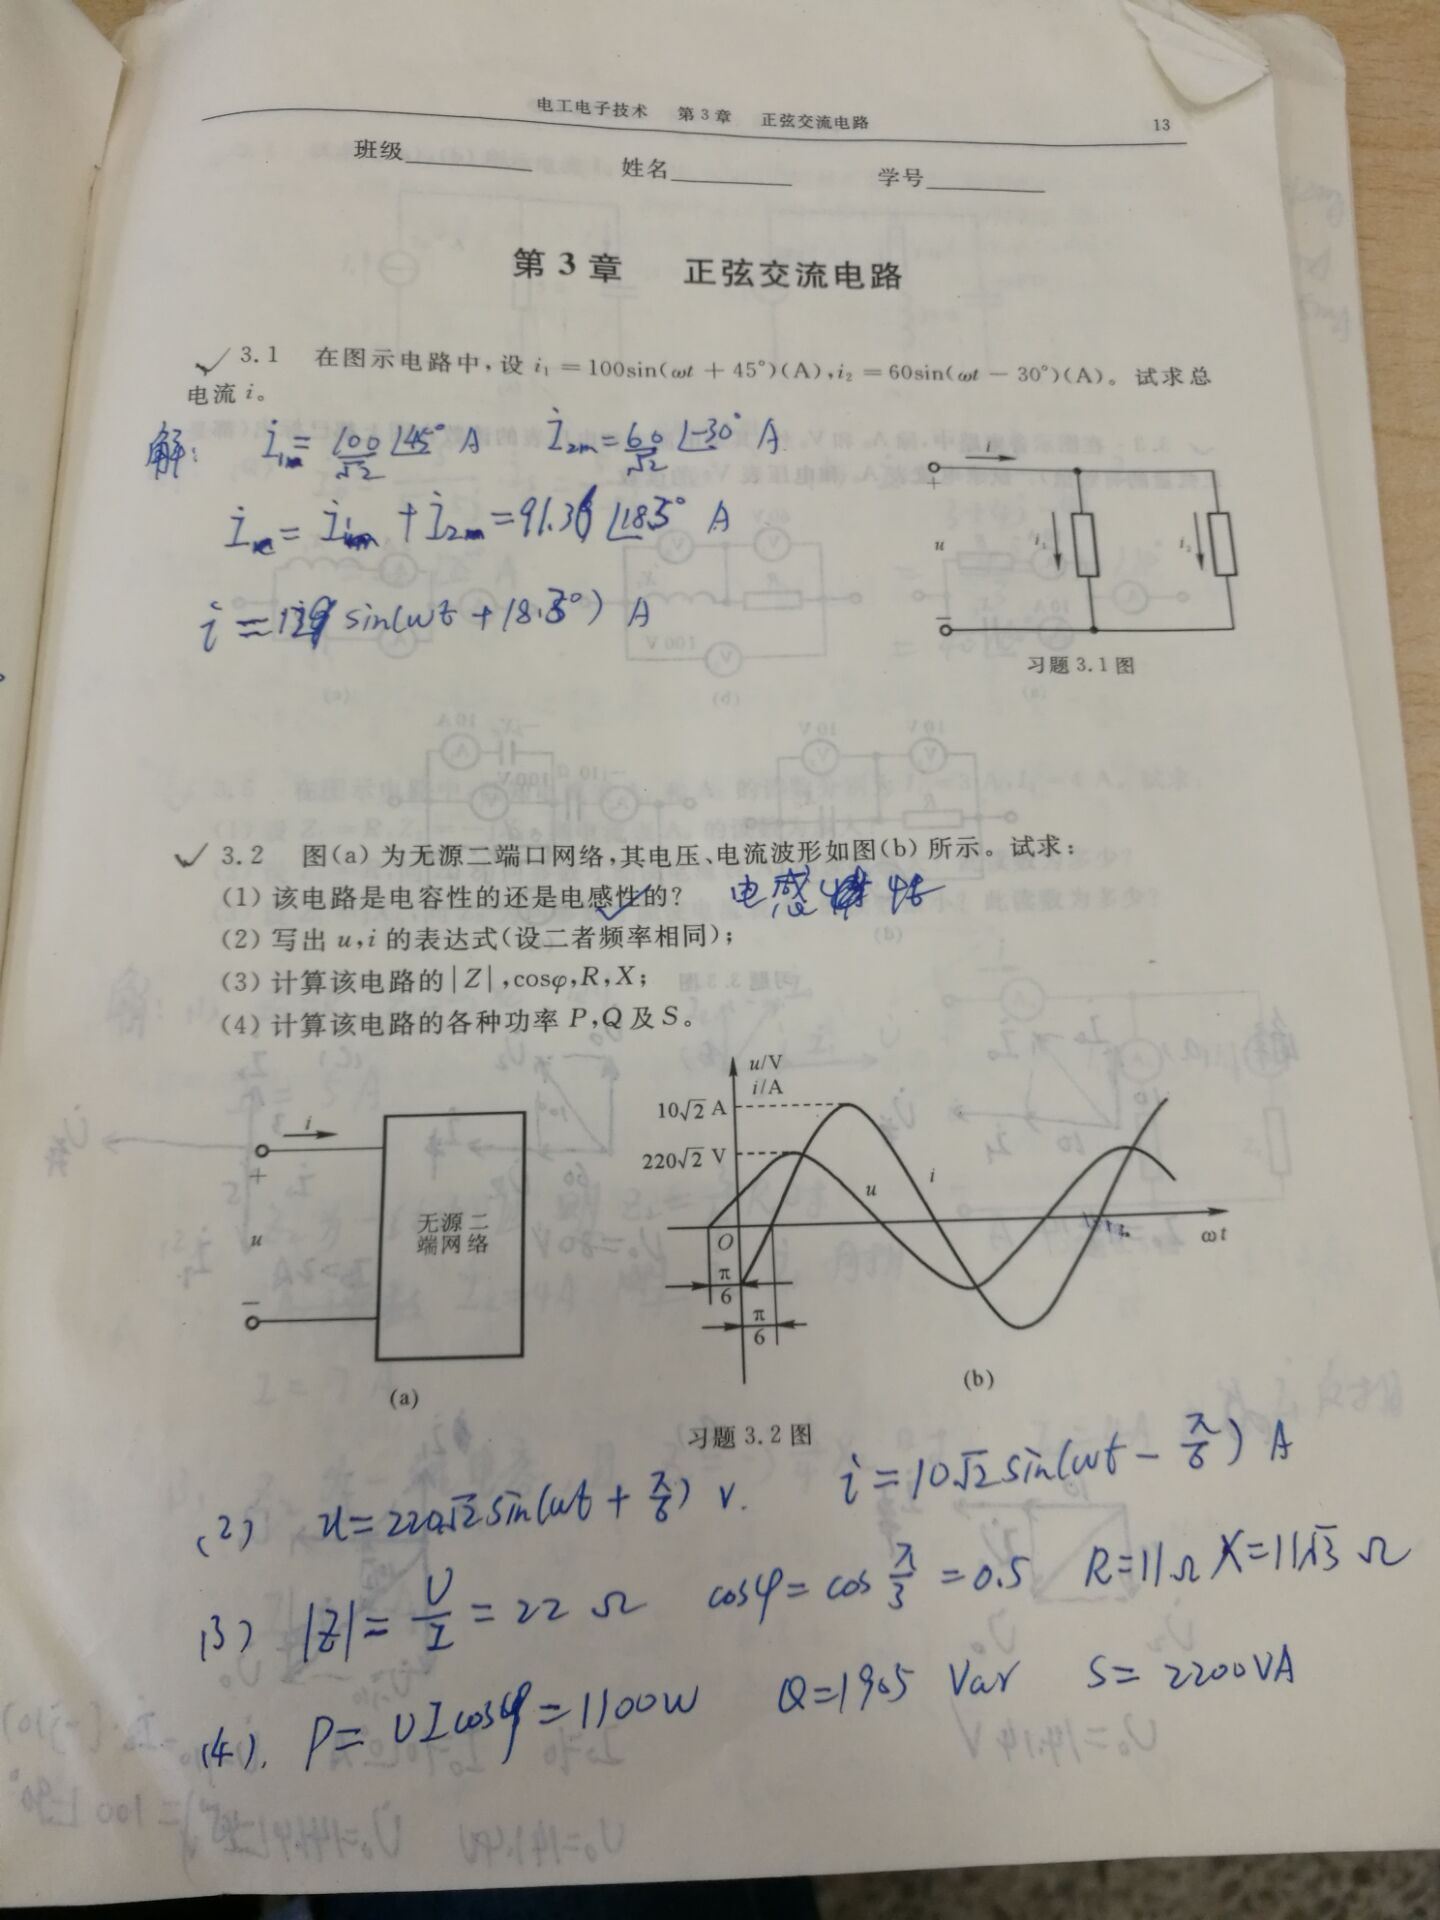 电工电子技术 第3章 正弦交流电路 13
班级 姓名 学号
第3章 正弦交流电路
3.1 在图示电路中,设 i₁ = 100sin(ωt + 45°)(A),i₂ = 60sin(ωt − 30°)(A)。试求总
电流 i。
解: İ₁ₘ = 100/√2 ∠45° A İ₂ₘ = 60/√2 ∠-30° A
+ İ₂ₘ = 91.3 ∠18.3° A
sin(ωt + 18.3°) A
i
+
u
i₁
i₂
−
习题 3.1 图
3.2 图(a)为无源二端口网络,其电压、电流波形如图(b)所示。试求:
(1) 该电路是电容性的还是电感性的? 电感性
(2) 写出 u,i 的表达式(设二者频率相同);
(3) 计算该电路的|Z|,cosφ,R,X;
(4) 计算该电路的各种功率 P,Q 及 S。
i
+
u
−
无源二
端网络
(a)
u/V
i/A
10√2 A
220√2 V
u
i
O
ωt
π/6
π/6
(b)
习题 3.2 图
(2) u = 220√2 sin(ωt + π/6) V. i = 10√2 sin(ωt − π/6) A
(3) |Z| = U/I = 22 Ω cosφ = cos π/3 = 0.5 R = 11 Ω X = 11√3 Ω
(4). P = UIcosφ = 1100W Q = 1905 Var S = 2200VA